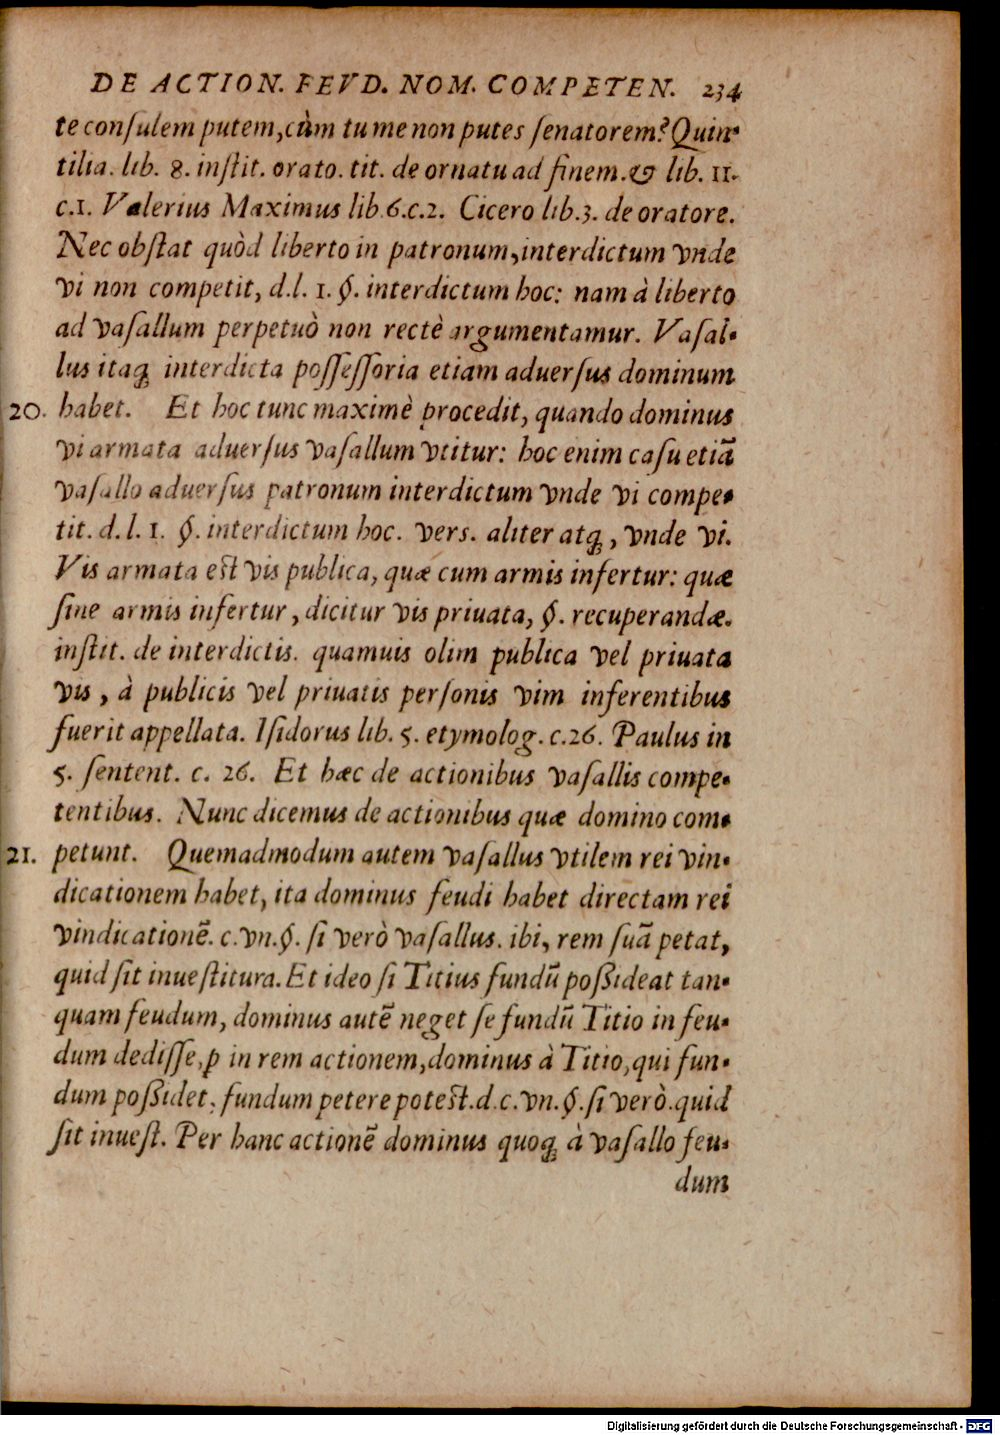 DE ACTION. FEVD. NOM. COMPETEN. 234
te conſulem putem, cùm tu me non putes ſenatorem? Quin-
tilia. lib. 8. inſtit. orato. tit. de ornatu ad finem. & lib. 11.
c.1. Valerius Maximus lib.6.c.2. Cicero lib.3. de oratore.
Nec obſtat quòd liberto in patronum, interdictum vnde
vi non competit, d.l. 1. §. interdictum hoc: nam à liberto
ad vaſallum perpetuò non rectè argumentamur. Vaſal-
lus itaq; interdicta poſſeſſoria etiam aduerſus dominum
20. habet. Et hoc tunc maximè procedit, quando dominus
vi armata aduerſus vaſallum vtitur: hoc enim caſu etiã
vaſallo aduerſus patronum interdictum vnde vi compe-
tit. d. l. 1. §. interdictum hoc. vers. aliter atq;, vnde vi.
Vis armata est vis publica, quæ cum armis infertur: quæ
ſine armis infertur, dicitur vis priuata, §. recuperandæ.
inſtit. de interdictis. quamuis olim publica vel priuata
vis, à publicis vel priuatis perſonis vim inferentibus
fuerit appellata. Iſidorus lib. 5. etymolog. c.26. Paulus in
5. ſentent. c. 26. Et hæc de actionibus vaſallis compe-
tentibus. Nunc dicemus de actionibus quæ domino com-
21. petunt. Quemadmodum autem vaſallus vtilem rei vin-
dicationem habet, ita dominus feudi habet directam rei
vindicationẽ. c.vn.§. ſi verò vaſallus. ibi, rem ſuã petat,
quid ſit inueſtitura. Et ideo ſi Titius fundũ poßideat tan-
quam feudum, dominus autẽ neget ſe fundũ Titio in feu-
dum dediſſe, ꝑ in rem actionem, dominus à Titio, qui fun-
dum poßidet, fundum petere potest. d.c.vn.§.ſi verò.quid
ſit inueſt. Per hanc actionẽ dominus quoq; à vaſallo feu-
dum
Digitalisierung gefördert durch die Deutsche Forschungsgemeinschaft - DFG